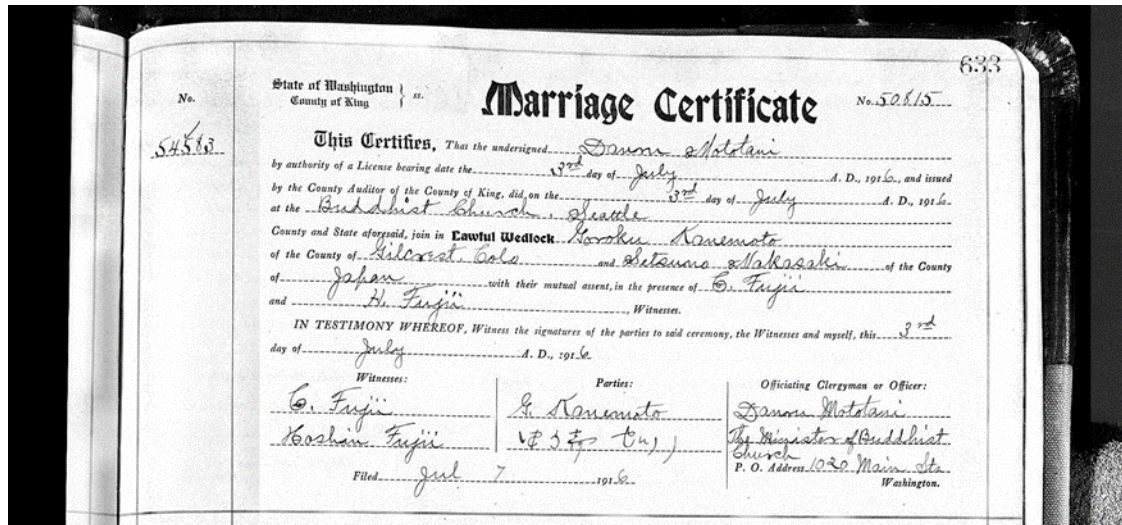 633
State of Washington } ss.
County of King
Marriage Certificate
No. 50815
No.
54583
This Certifies, That the undersigned Danom Mototani
by authority of a License bearing date the 3rd day of July A. D., 1916, and issued
by the County Auditor of the County of King, did, on the 3rd day of July A. D., 1916
at the Buddhist Church, Seattle
County and State aforesaid, join in Lawful Wedlock Goroku Kanemoto
of the County of Gilcrest, Colo and Setsuno Nakasaki of the County
of Japan with their mutual assent, in the presence of C. Fujii
and H. Fujii, Witnesses.
IN TESTIMONY WHEREOF, Witness the signatures of the parties to said ceremony, the Witnesses and myself, this 3rd
day of July A. D., 1916
Witnesses:
C. Fujii
Hoshin Fujii
Parties:
G. Kanemoto
Officiating Clergyman or Officer:
Danom Mototani
The Minister of Buddhist
Church
P. O. Address 1020 Main Sts
Washington.
Filed Jul 7 1916